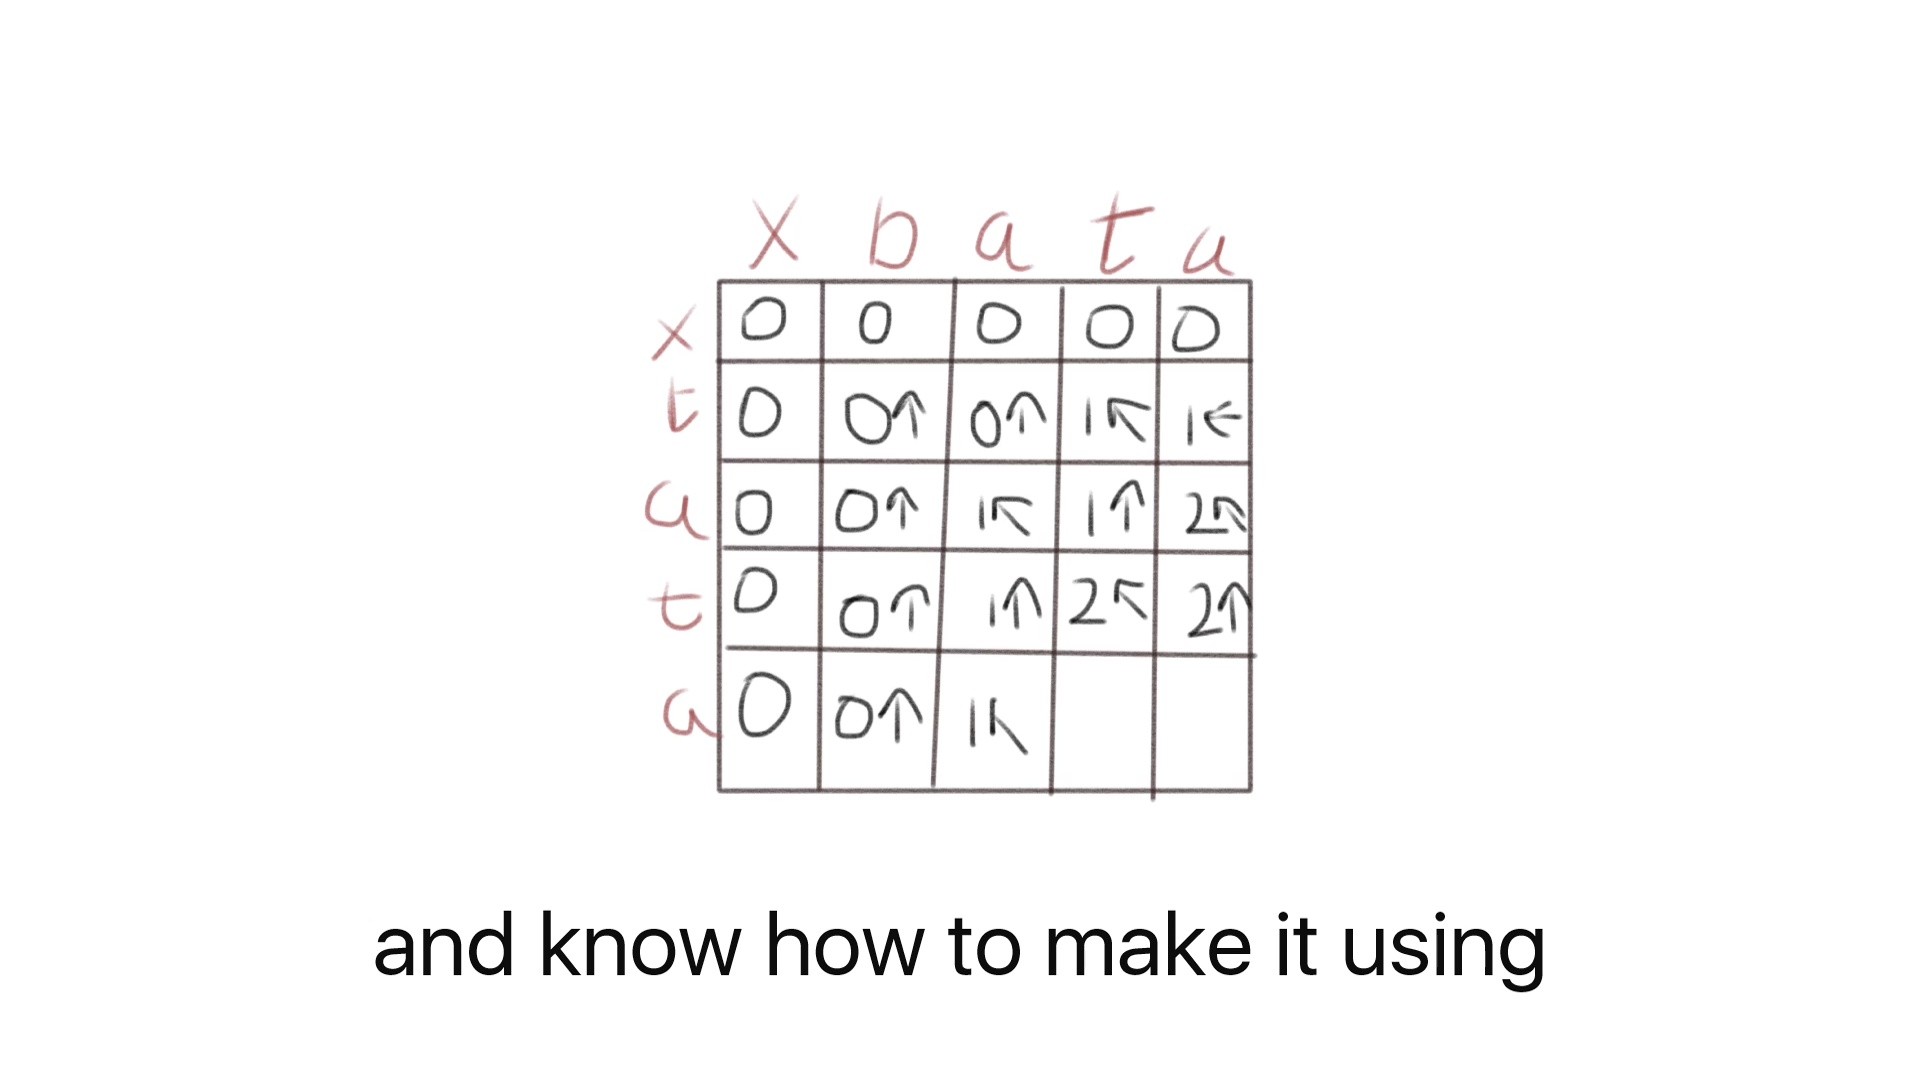 x b a t a
x 0 0 0 0 0
t 0 0↑ 0↑ 1↖ 1←
a 0 0↑ 1↖ 1↑ 2↖
t 0 0↑ 1↑ 2↖ 2↑
a 0 0↑ 1↖
and know how to make it using